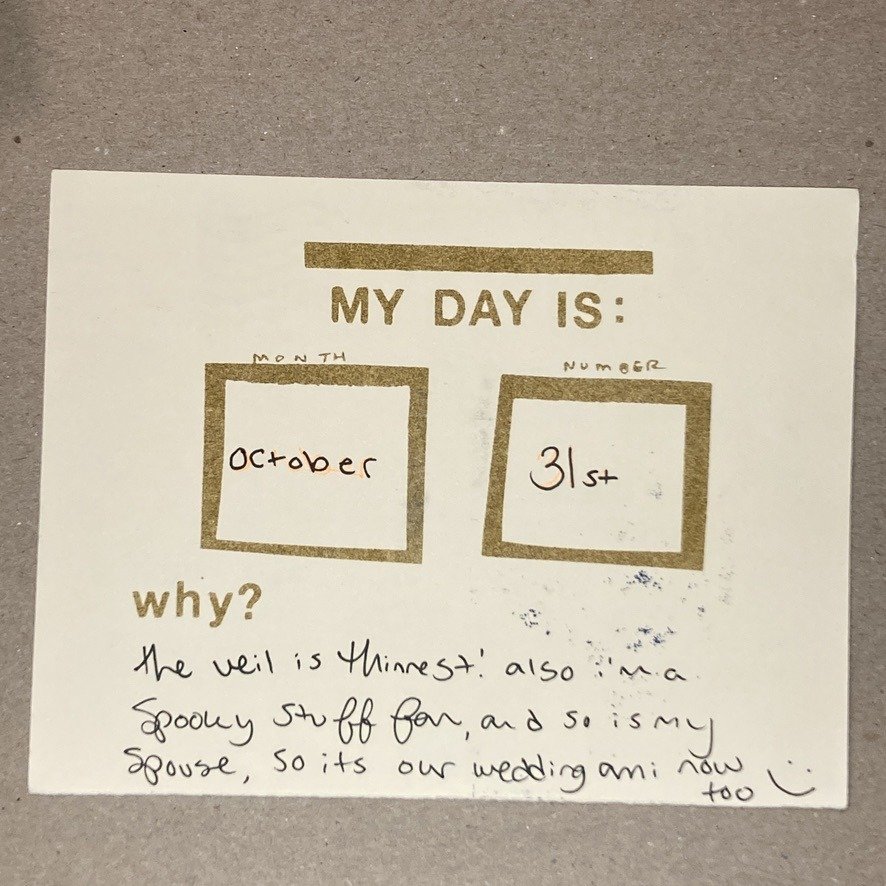 MY DAY IS:
MONTH
NUMBER
october
31st
why?
the veil is thinnest! also i'm a
spooky stuff fan, and so is my
spouse, so its our wedding anni now
too :)